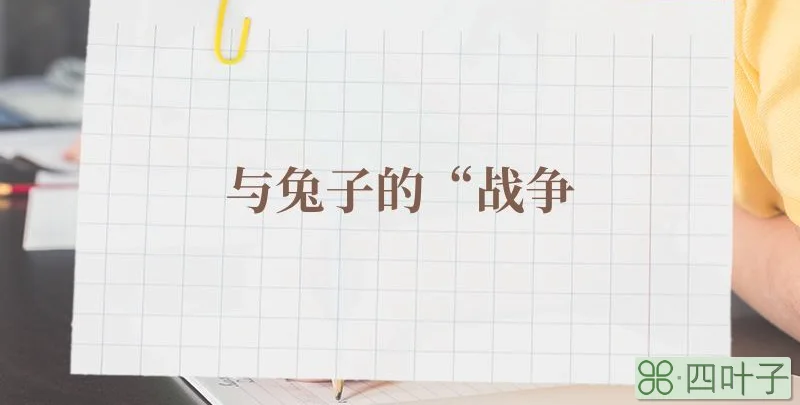 与兔子的“战争
四叶子